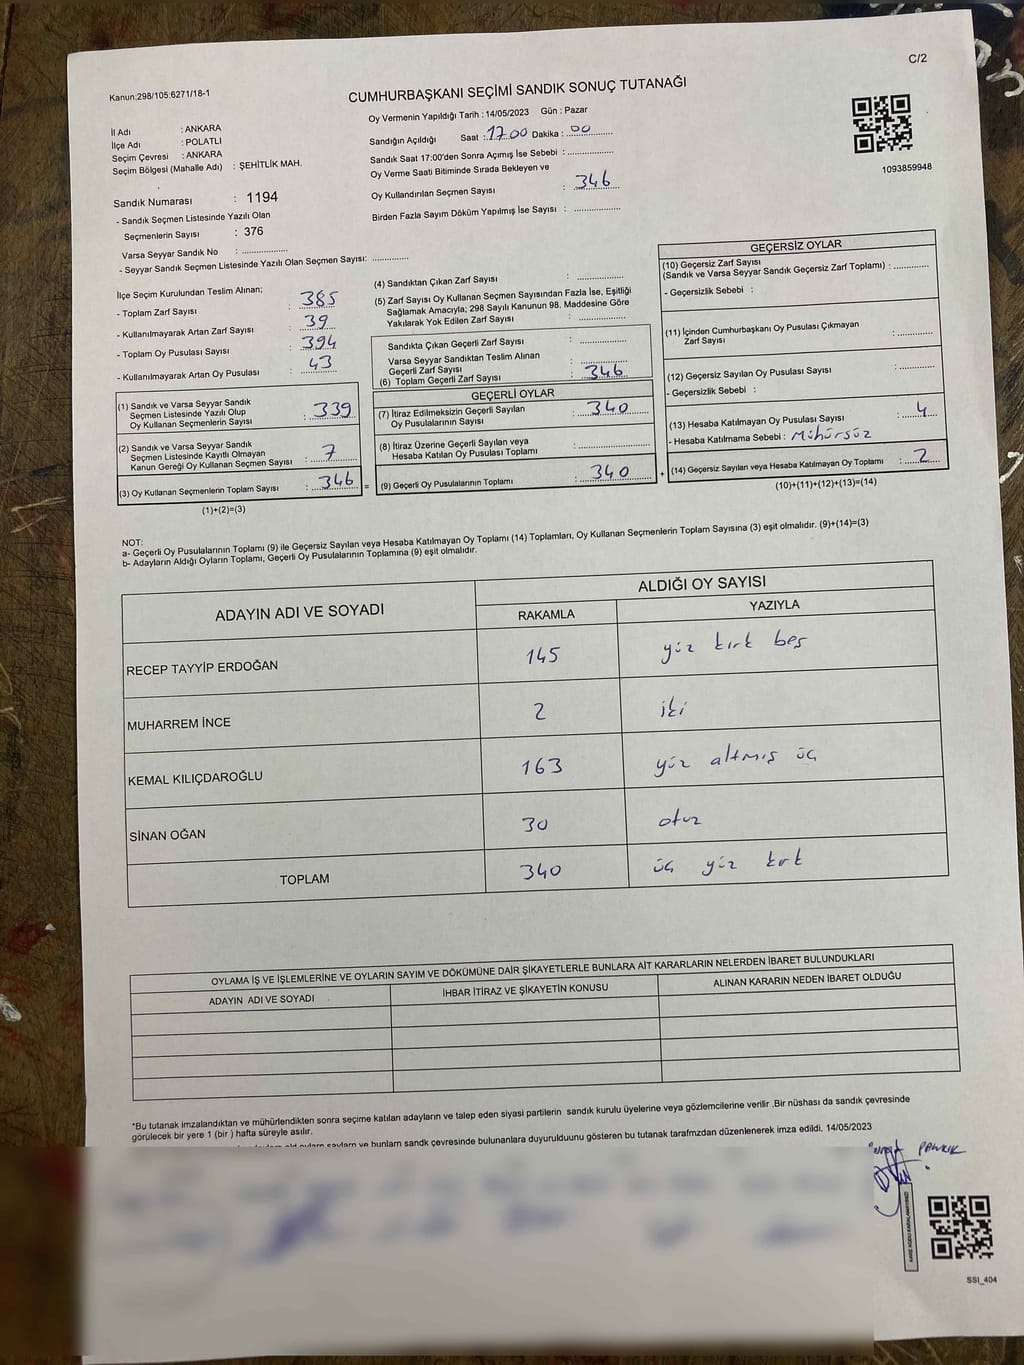 C/2
Kanun:298/105;6271/18-1
CUMHURBAŞKANI SEÇİMİ SANDIK SONUÇ TUTANAĞI
Oy Vermenin Yapıldığı Tarih : 14/05/2023 Gün : Pazar
İl Adı : ANKARA
İlçe Adı : POLATLI
Seçim Çevresi : ANKARA
Seçim Bölgesi (Mahalle Adı) : ŞEHİTLİK MAH.
Sandığın Açıldığı Saat : 17.00 Dakika : 00
Sandık Saat 17:00'den Sonra Açımış İse Sebebi :
Oy Verme Saati Bitiminde Sırada Bekleyen ve
Oy Kullandırılan Seçmen Sayısı : 346
Birden Fazla Sayım Döküm Yapılmış İse Sayısı :
1093859948
Sandık Numarası : 1194
- Sandık Seçmen Listesinde Yazılı Olan
Seçmenlerin Sayısı : 376
Varsa Seyyar Sandık No :
- Seyyar Sandık Seçmen Listesinde Yazılı Olan Seçmen Sayısı:
İlçe Seçim Kurulundan Teslim Alınan;
- Toplam Zarf Sayısı : 385
- Kullanılmayarak Artan Zarf Sayısı : 39
- Toplam Oy Pusulası Sayısı : 394
- Kullanılmayarak Artan Oy Pusulası : 43
(1) Sandık ve Varsa Seyyar Sandık
Seçmen Listesinde Yazılı Olup
Oy Kullanan Seçmenlerin Sayısı : 339
(2) Sandık ve Varsa Seyyar Sandık
Seçmen Listesinde Kayıtlı Olmayan
Kanun Gereği Oy Kullanan Seçmen Sayısı : 7
(3) Oy Kullanan Seçmenlerin Toplam Sayısı : 346 =
(1)+(2)=(3)
(4) Sandıktan Çıkan Zarf Sayısı :
(5) Zarf Sayısı Oy Kullanan Seçmen Sayısından Fazla İse, Eşitliği
Sağlamak Amacıyla; 298 Sayılı Kanunun 98. Maddesine Göre
Yakılarak Yok Edilen Zarf Sayısı :
Sandıkta Çıkan Geçerli Zarf Sayısı :
Varsa Seyyar Sandıktan Teslim Alınan
Geçerli Zarf Sayısı :
(6) Toplam Geçerli Zarf Sayısı : 346
GEÇERLİ OYLAR
(7) İtiraz Edilmeksizin Geçerli Sayılan
Oy Pusulasının Sayısı : 340
(8) İtiraz Üzerine Geçerli Sayılan veya
Hesaba Katılan Oy Pusulası Toplamı :
(9) Geçerli Oy Pusulalarının Toplamı : 340 +
GEÇERSİZ OYLAR
(10) Geçersiz Zarf Sayısı
(Sandık ve Varsa Seyyar Sandık Geçersiz Zarf Toplamı) :
- Geçersizlik Sebebi :
(11) İçinden Cumhurbaşkanı Oy Pusulası Çıkmayan
Zarf Sayısı :
(12) Geçersiz Sayılan Oy Pusulası Sayısı :
- Geçersizlik Sebebi :
(13) Hesaba Katılmayan Oy Pusulası Sayısı : 4
- Hesaba Katılmama Sebebi : Mühürsüz
(14) Geçersiz Sayılan veya Hesaba Katılmayan Oy Toplamı : 2
(10)+(11)+(12)+(13)=(14)
NOT:
a- Geçerli Oy Pusulalarının Toplamı (9) ile Geçersiz Sayılan veya Hesaba Katılmayan Oy Toplamı (14) Toplamları, Oy Kullanan Seçmenlerin Toplam Sayısına (3) eşit olmalıdır. (9)+(14)=(3)
b- Adayların Aldığı Oyların Toplamı, Geçerli Oy Pusulalarının Toplamına (9) eşit olmalıdır.
ADAYIN ADI VE SOYADI
ALDIĞI OY SAYISI
RAKAMLA YAZIYLA
RECEP TAYYİP ERDOĞAN 145 yüz kırk beş
MUHARREM İNCE 2 iki
KEMAL KILIÇDAROĞLU 163 yüz altmış üç
SİNAN OĞAN 30 otuz
TOPLAM 340 üç yüz kırk
OYLAMA İŞ VE İŞLEMLERİNE VE OYLARIN SAYIM VE DÖKÜMÜNE DAİR ŞİKAYETLERLE BUNLARA AİT KARARLARIN NELERDEN İBARET BULUNDUKLARI
ADAYIN ADI VE SOYADI İHBAR İTİRAZ VE ŞİKAYETİN KONUSU ALINAN KARARIN NEDEN İBARET OLDUĞU
*Bu tutanak imzalandıktan ve mühürlendikten sonra seçime katılan adayların ve talep eden siyasi partilerin sandık kurulu üyelerine veya gözlemcilerine verilir .Bir nüshası da sandık çevresinde
görülecek bir yere 1 (bir ) hafta süreyle asılır.
sandk çevresinde bulunanlara duyurulduunu gösteren bu tutanak tarafmzdan düzenlenerek imza edildi. 14/05/2023
SSI_404